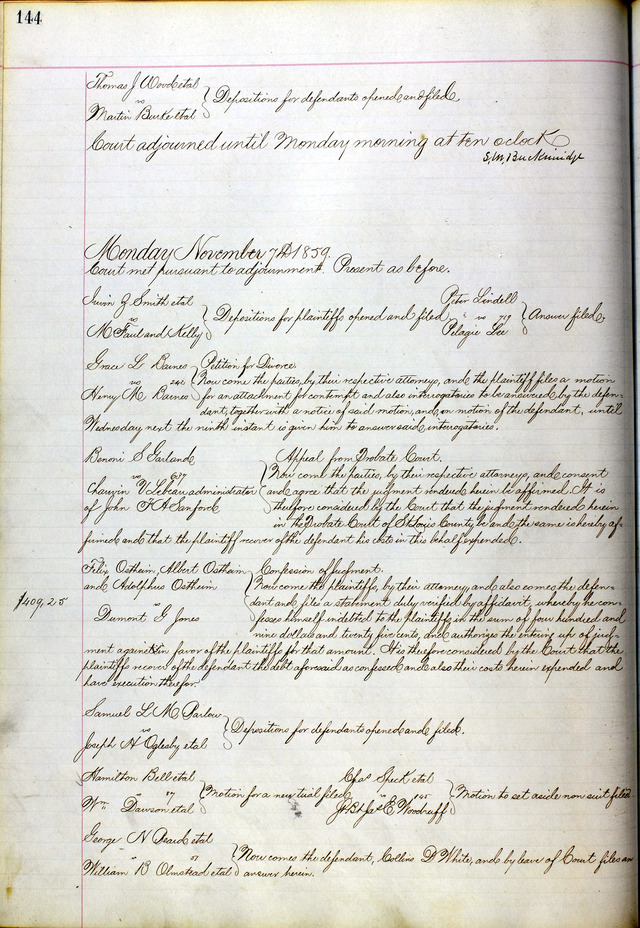 144
Thomas J Wood etal
vs
Martin Burke etal
Depositions for defendants opened and filed.
Court adjourned until Monday morning at ten oclock
S. M. Breckinridge
Monday November 7th 1859.
Court met pursuant to adjournment. Present as before.
Irwin Z Smith etal
vs
McFaul and Kelly
Depositions for plaintiffs opened and filed
Peter Lindell
vs 719
Pelagie Lee
Answer filed.
Grace L Baines
vs 242
Henry M Baines
Petition for Divorce.
Now come the parties, by their respective attorneys, and the plaintiff files a motion
for an attachment for contempt and also interrogatories to be answered by the defen-
dant, together with a notice of said motion, and, on motion of the defendant, until
Wednesday next the ninth instant is given him to answer said interogatories.
Benoni S Garland
vs 637
Chauvin V Lebeau administrator
of John F A Sanford
Appeal from Probate Court.
Now come the parties, by their respective attorneys, and consent
and agree that the jugment rendered herein be affirmed. It is
therefore considered by the Court that the jugment rendered herein
in the Probate Court of St Louis County, be and the same is hereby af-
firmed and that the plaintiff recover of the defendant his costs in this behalf expended.
Filix Ostheim, Albert Ostheim
and Adolphus Ostheim
vs
Dumont G Jones
$409,25
Confession of Jugment.
Now come the plaintiffs, by their attorney, and also comes the defen-
dant and files a statement duly verified by affidavit, whereby he con-
fesses himself indebted to the plaintiffs in the sum of four hundred and
nine dollars and twenty five cents, and authorizes the entering up of jug-
ment against in favor of the plaintiffs for that amount. It is therefore considered by the Court that the
plaintiffs recover of the defendant the debt aforesaid as confessed and also their costs herein expended and
have execution therefor.
Samuel L M Barlow
vs
Joseph H Oglesby etal
Depositions for defendants opened and filed.
Hamilton Bell etal
vs 87
Wm Dawson etal
Motion for a new trial filed
Chas Speck etal
vs
Jas E Woodruff
Motion to set aside non suit filed
George N Beard etal
vs
William B Olmstead etal
Now comes the defendant, Collins D White, and by leave of Court files an
answer herein.